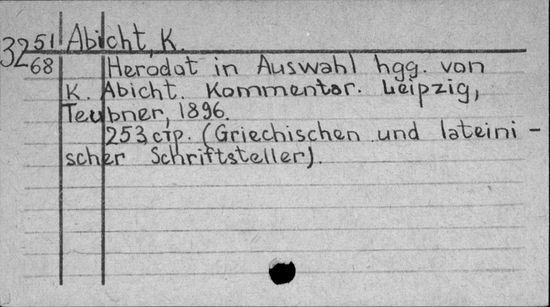 32 51/68
Abicht, K.
Herodot in Auswahl hgg. von
K. Abicht. Kommentar. Leipzig,
Teubner, 1896.
253 стр. (Griechischen und lateini-
scher Schriftsteller).